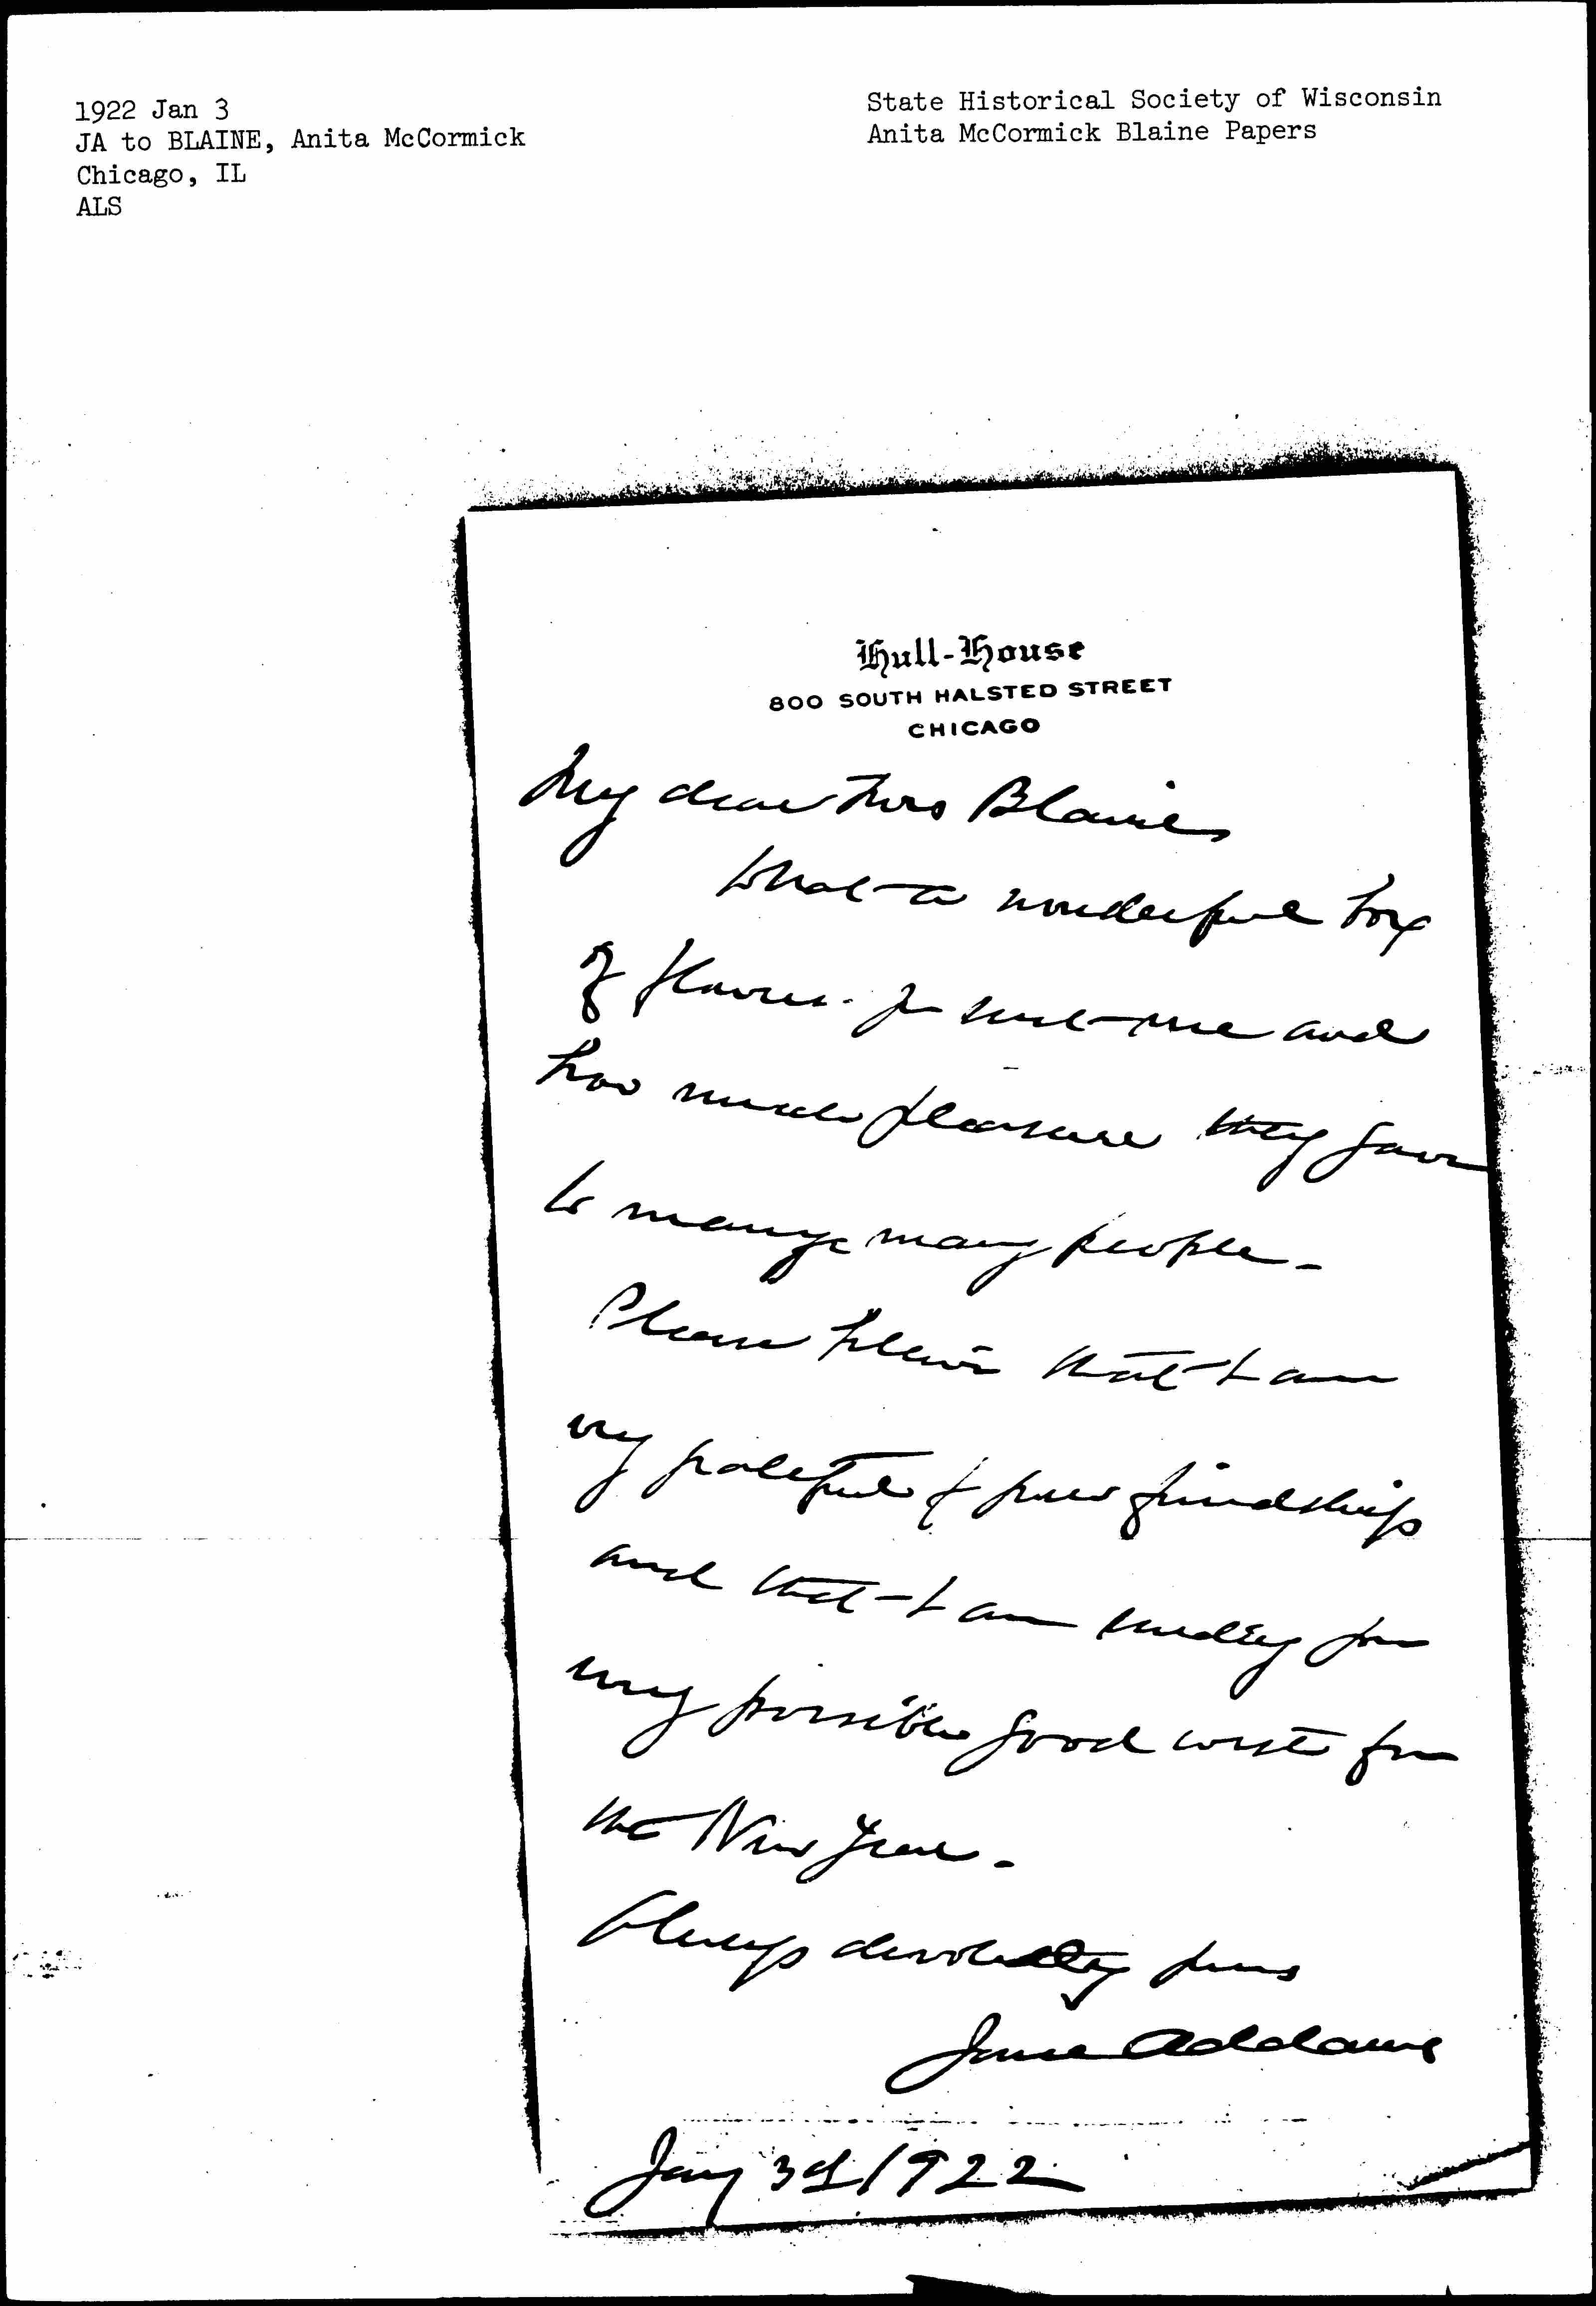 1922 Jan 3
JA to BLAINE, Anita McCormick
Chicago, IL
ALS
State Historical Society of Wisconsin
Anita McCormick Blaine Papers
Hull-House
800 SOUTH HALSTED STREET
CHICAGO
My dear Mrs Blaine
What a wonderful box
of flowers you sent me and
how much pleasure they gave
to many many people –
Please believe that I am
very grateful for your friendship
and that I am sending you
every possible good wish for
the New Year –
Always devotedly yours
Jane Addams
Jany 3d 1922